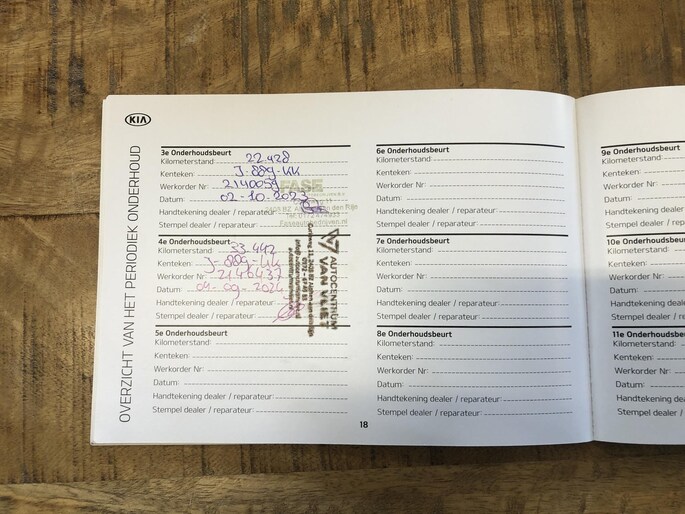 KIA
OVERZICHT VAN HET PERIODIEK ONDERHOUD
3e Onderhoudsbeurt
Kilometerstand: 22.428
Kenteken: J-889-KK
Werkorder Nr: 2140059
Datum: 02-10-2023
Handtekening dealer / reparateur:
Stempel dealer / reparateur:
FASE
4e Onderhoudsbeurt
Kilometerstand: 33.442
Kenteken: J-889-KK
Werkorder Nr: 2146437
Datum: 04-09-2024
Handtekening dealer / reparateur:
Stempel dealer / reparateur:
AUTOCENTRUM
VAN VLIET
5e Onderhoudsbeurt
Kilometerstand:
Kenteken:
Werkorder Nr:
Datum:
Handtekening dealer / reparateur:
Stempel dealer / reparateur:
6e Onderhoudsbeurt
Kilometerstand:
Kenteken:
Werkorder Nr:
Datum:
Handtekening dealer / reparateur:
Stempel dealer / reparateur:
7e Onderhoudsbeurt
Kilometerstand:
Kenteken:
Werkorder Nr:
Datum:
Handtekening dealer / reparateur:
Stempel dealer / reparateur:
8e Onderhoudsbeurt
Kilometerstand:
Kenteken:
Werkorder Nr:
Datum:
Handtekening dealer / reparateur:
Stempel dealer / reparateur:
18
9e Onderhoudsbeurt
Kilometerstand:
Kenteken:
Werkorder Nr:
Datum:
Handtekening deale
Stempel dealer / re
10e Onderhoudsbe
Kilometerstand:
Kenteken:
Werkorder Nr:
Datum:
Handtekening deale
Stempel dealer / re
11e Onderhoudsbe
Kilometerstand:
Kenteken:
Werkorder Nr:
Datum:
Handtekening deal
Stempel dealer / re